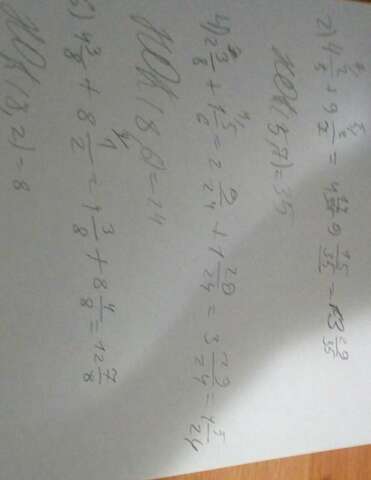 2) 4 2/5 + 9 /7 = 4 14/35 + 9 15/35 = 13 29/35
НОК(5,7)=35
4) 2 3/8 + 1 5/6 = 2 9/24 + 1 20/24 = 3 29/24 = 5/24
НОК(8,6)=24
) 4 3/8 + 8 1/2 = 4 3/8 + 8 4/8 = 12 7/8
НОК(8,2)=8